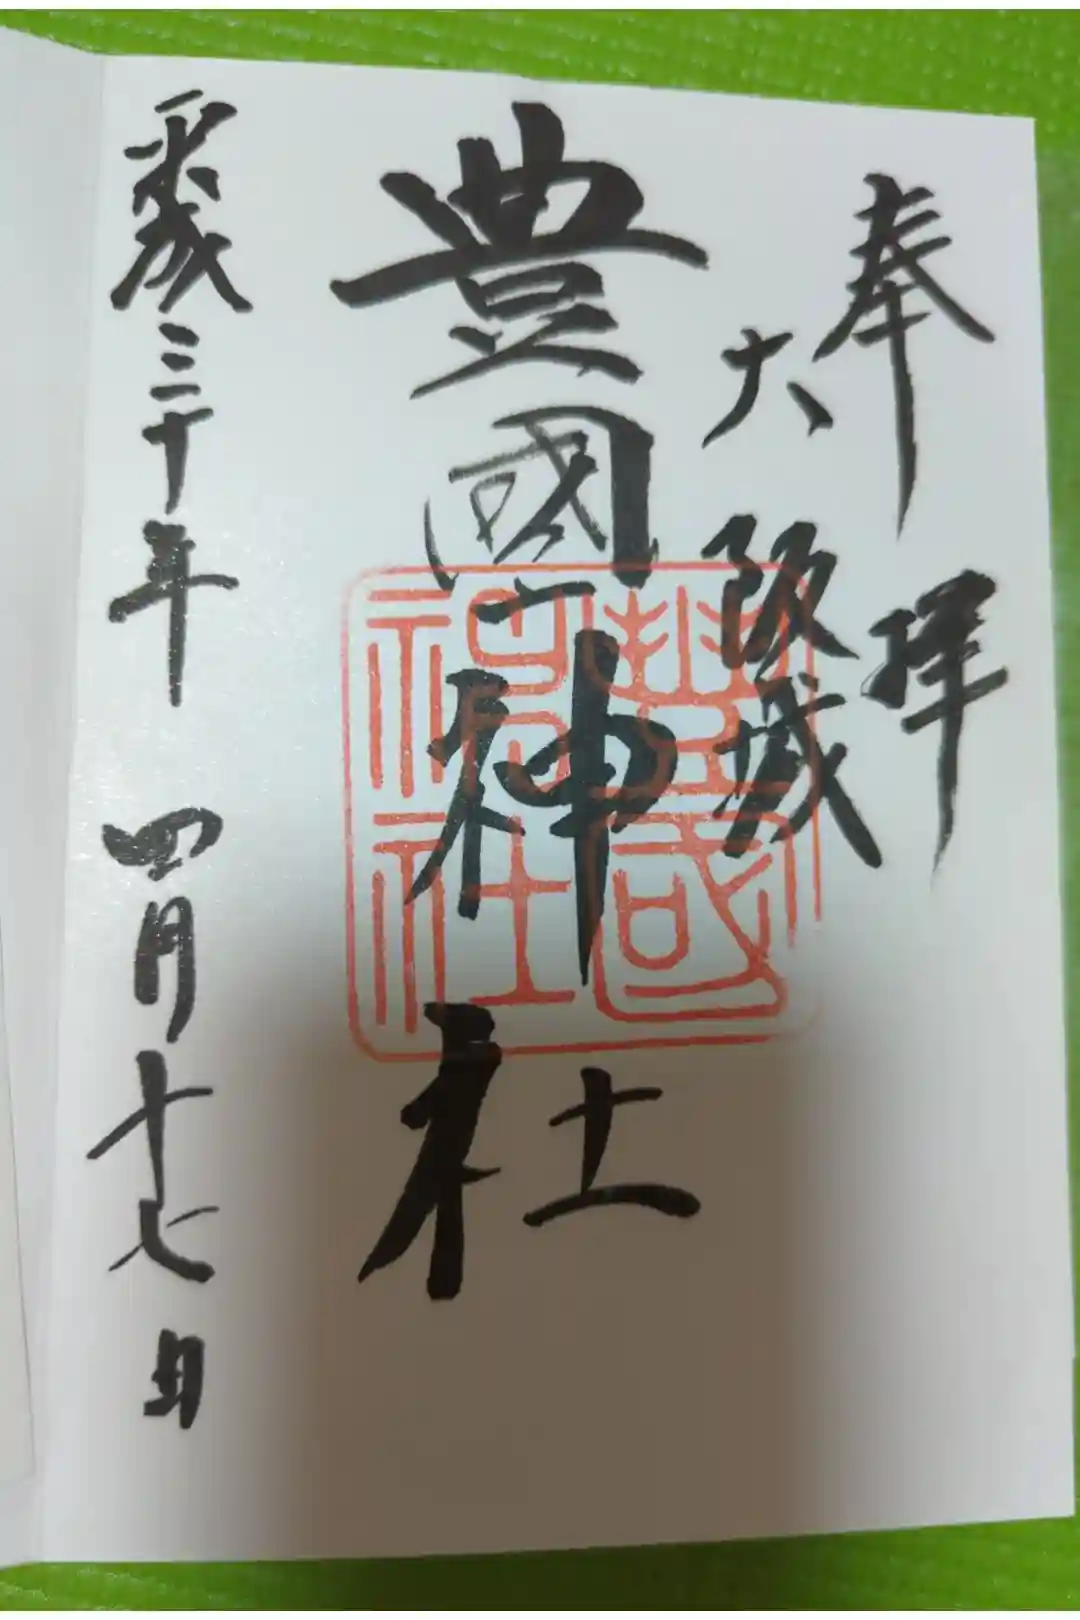 奉拝
大阪城
豊國神社
豊國神社
平成三十年四月十七日